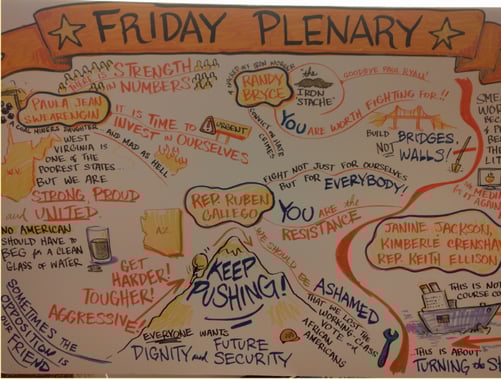 FRIDAY PLENARY
THERE IS STRENGTH
IN NUMBERS
PAULA JEAN
SWEARENGIN
A COAL MINERS DAUGHTER
WEST
VIRGINIA IS
ONE OF THE
POOREST STATES...
BUT WE ARE
STRONG, PROUD
and UNITED.
AND MAD AS HELL
W.V.
IT IS TIME to
INVEST IN OURSELVES
URGENT
NO AMERICAN
SHOULD HAVE to
BEG for A CLEAN
GLASS OF WATER
SOMETIMES THE
OPPOSITION IS
OUR FRIEND
RANDY
BRYCE
the
IRON
'STACHE'
GOODBYE PAUL RYAN!
YOU ARE WORTH FIGHTING FOR!!
BUILD BRIDGES,
NOT WALLS!
FIGHT NOT JUST FOR OURSELVES
BUT FOR EVERYBODY!
REP. RUBEN
GALLEGO
YOU ARE the
RESISTANCE
AZ.
GET
HARDER!
TOUGHER!
AGGRESSIVE!
KEEP
PUSHING!
EVERYONE WANTS
DIGNITY and FUTURE
SECURITY
WE SHOULD BE ASHAMED
THAT WE LOST THE
WORKING-CLASS
VOTE and
AFRICAN
AMERICANS
JANINE JACKSON,
KIMBERLE CRENSHAW
REP. KEITH ELLISON
THIS IS NOT
COURSE
...THIS IS ABOUT
TURNING the